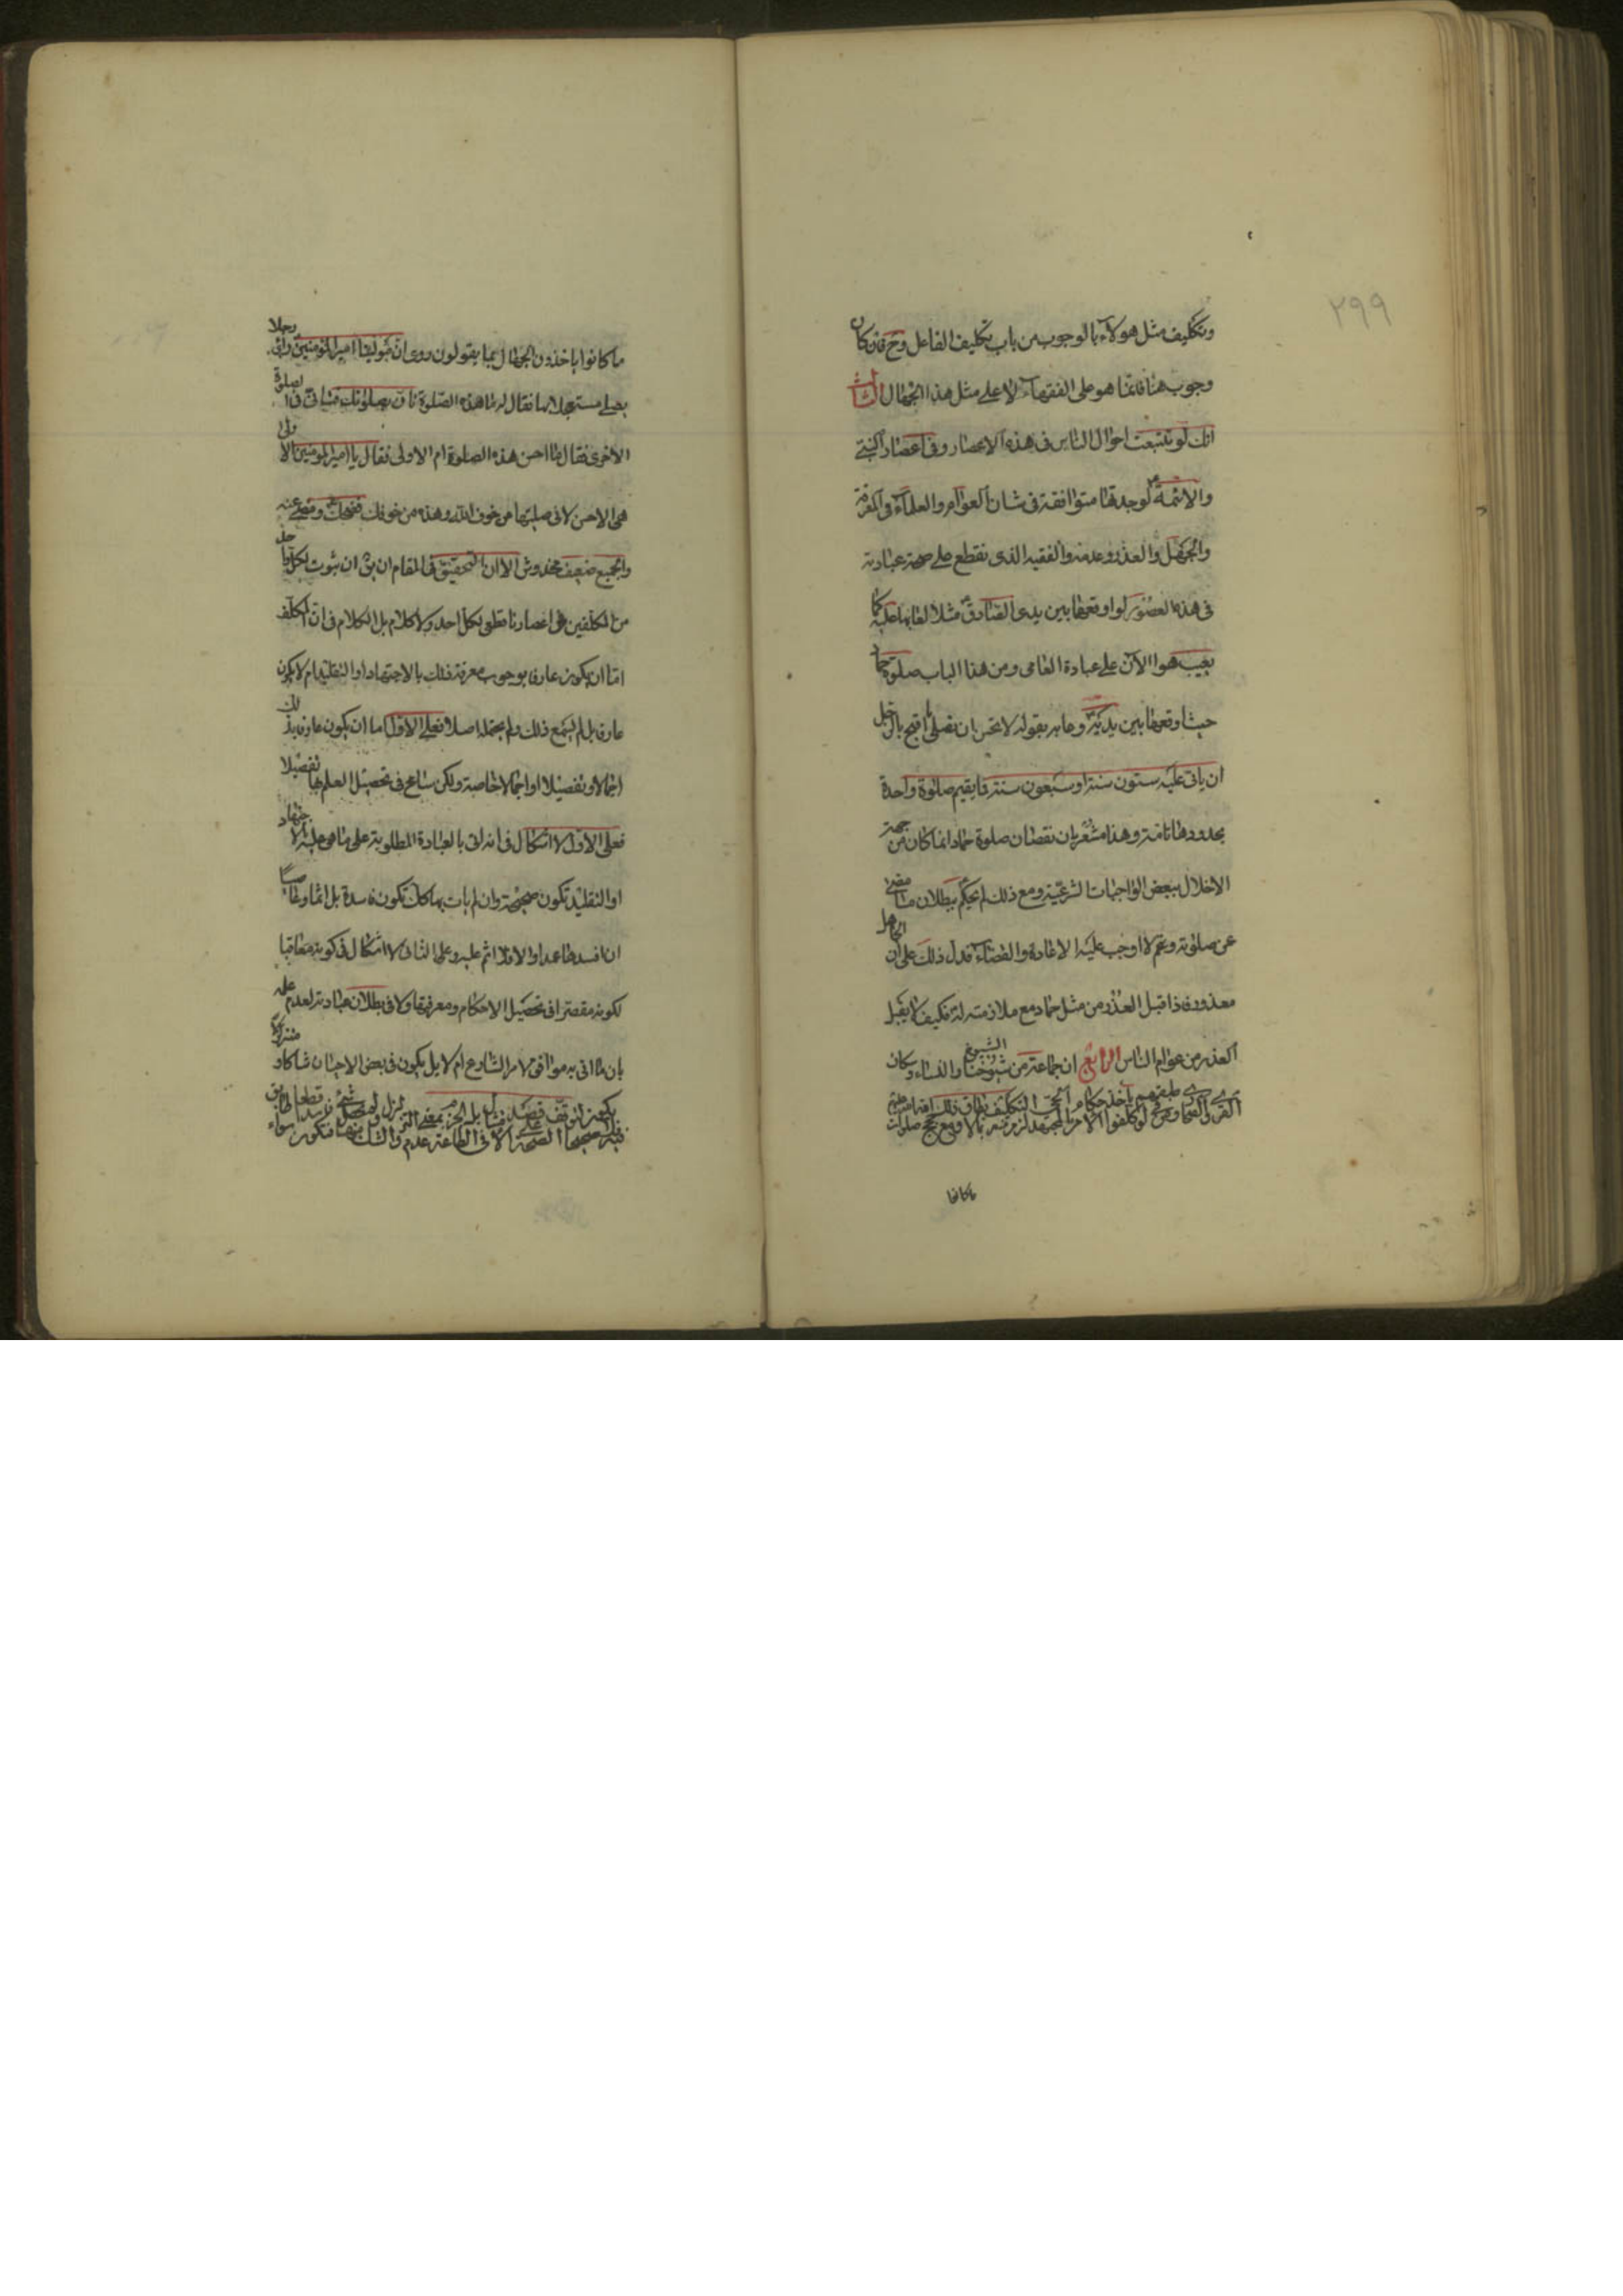 ٢٩٩
وتكليف مثل هولاء بالوجوب من باب تكليف الغافل وح فان كان
وجوب هنا فانما هو على الفقهاء لا على مثل هذا الجهال الثالث
انك لو تتبعت احوال الناس فى هذه الاعصار وفى اعصار النبى
والائمة ع لوجدتها متوافقة فى شان العوام والعلماء فى المعرفة
والجهل والعذر وعدمه والفقيه الذى نقطع على صحة عبادته
فى هذه العصور لو اوقعها بين يدى الصادق ع مثلا لعابها عليه كما
يعيب هو الان على عبادة العامى ومن هذا الباب صلوة حماد
حيث اوقعها بين يديه وعابه بقوله لا تحسن ان تصلى ما اقبح بالرجل
ان ياتى عليه ستون سنة او سبعون سنة فما يقيم صلوة واحدة
بحدودها تامة وهذا مشعر بان نقصان صلوة حماد انما كان من جهة
الاخلال ببعض الواجبات الشرعية ومع ذلك لم يحكم ببطلان ما مضى
عن صلوته وعمره لا اوجب عليه الاعادة والقضاء فدل ذلك على ان الجاهل
معذور فاذا قبل العذر من مثل حماد مع ملازمته له فكيف لا يقبل
العذر من عوام الناس الرابع ان جماعة من شيوخنا الشيوخ والنساء وسكان
القرى والصحارى
ما كانوا
ما كانوا ياخذون الجهال بما يقولون روى ان مولينا امير المؤمنين راى رجلا
يصلى مستعجلا بها فقال له ما هذه الصلوة فاق بصلوتك فتأنى فى الصلوة
الاخرى فقال ما احسن هذه الصلوة ام الاولى فقال يا امير المومنين الاولى
هى الاحسن لانى صليتها من خوف الله وهذه من خوفك فضحك ومضى عنه
والجميع ضعيف مخدوش الا ان التحقيق فى المقام ان يق ان ثبوت لكل واحد
من المكلفين فى اعصارنا قطعى لكل احد ولا كلام بل الكلام فى ان المكلف
اما ان يكون عارفا بوجوب معرفة ذلك بالاجتهاد او التقليد ام لا يكون
عارفا بل لم يسمع ذلك ولم يحتمله اصلا فعلى الاول اما ان يكون عارفا بذلك
اجمالا وتفصيلا او اجمالا خاصة ولكن سامح فى تحصيل العلم بها تفصيلا
فعلى الاول لا اشكال فى انه اتى بالعبادة المطلوبة على ما هى عليه بالاجتهاد
او التقليد تكون صحيحة وان لم يات بها كك تكون فاسدة بل اثما وعاصيا
ان افسدها عمدا والا فلا اثم عليه وعلى الثانى لا اشكال فى كونه معاقبا
لكونه مقصرا فى تحصيل الاحكام ومعرفتها ولا فى بطلان عبادته لعدم علمه
بان ما اتى به موافق لامر الشارع ام لا بل يكون فى بعض الاحيان شاكا او متزلزلا